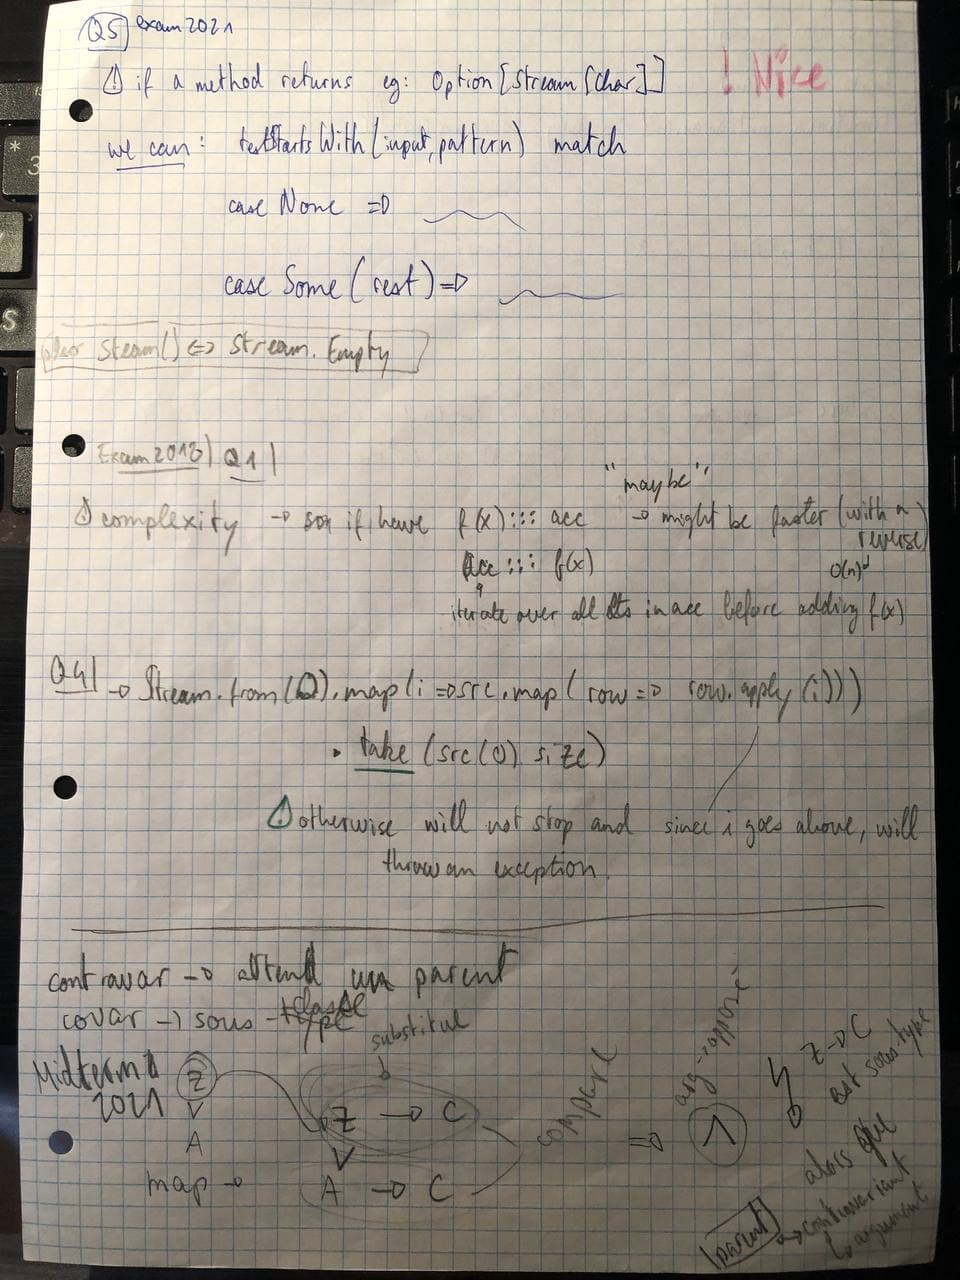 Q5 exam 2021
⚠ if a method returns eg: Option[Stream[Char]]
! Nice
we can: testStartsWith(input, pattern) match
case None =>
case Some(rest) =>
Steam() <=> Stream.Empty
Exam 2018 Q1
"maybe"
⚠ complexity → if have f(x) ::: acc → might be faster (with a
reverse)
acc ::: f(x)
O(n)
iterate over all elts in acc before adding f(x)
Q4 → Stream.from(0).map(i => src.map(row => row.apply(i)))
.take(src(0).size)
⚠ otherwise will not stop and since i goes above, will
throw an exception.
contravar → attend un parent
covar → sous - type
substitut
Midterm
2021
Z
V
A
Z → C
V
map → A → C
compare
=>
arg → opposé
Z → C
est sous type
alors que
parent → contravariant
↳ argument